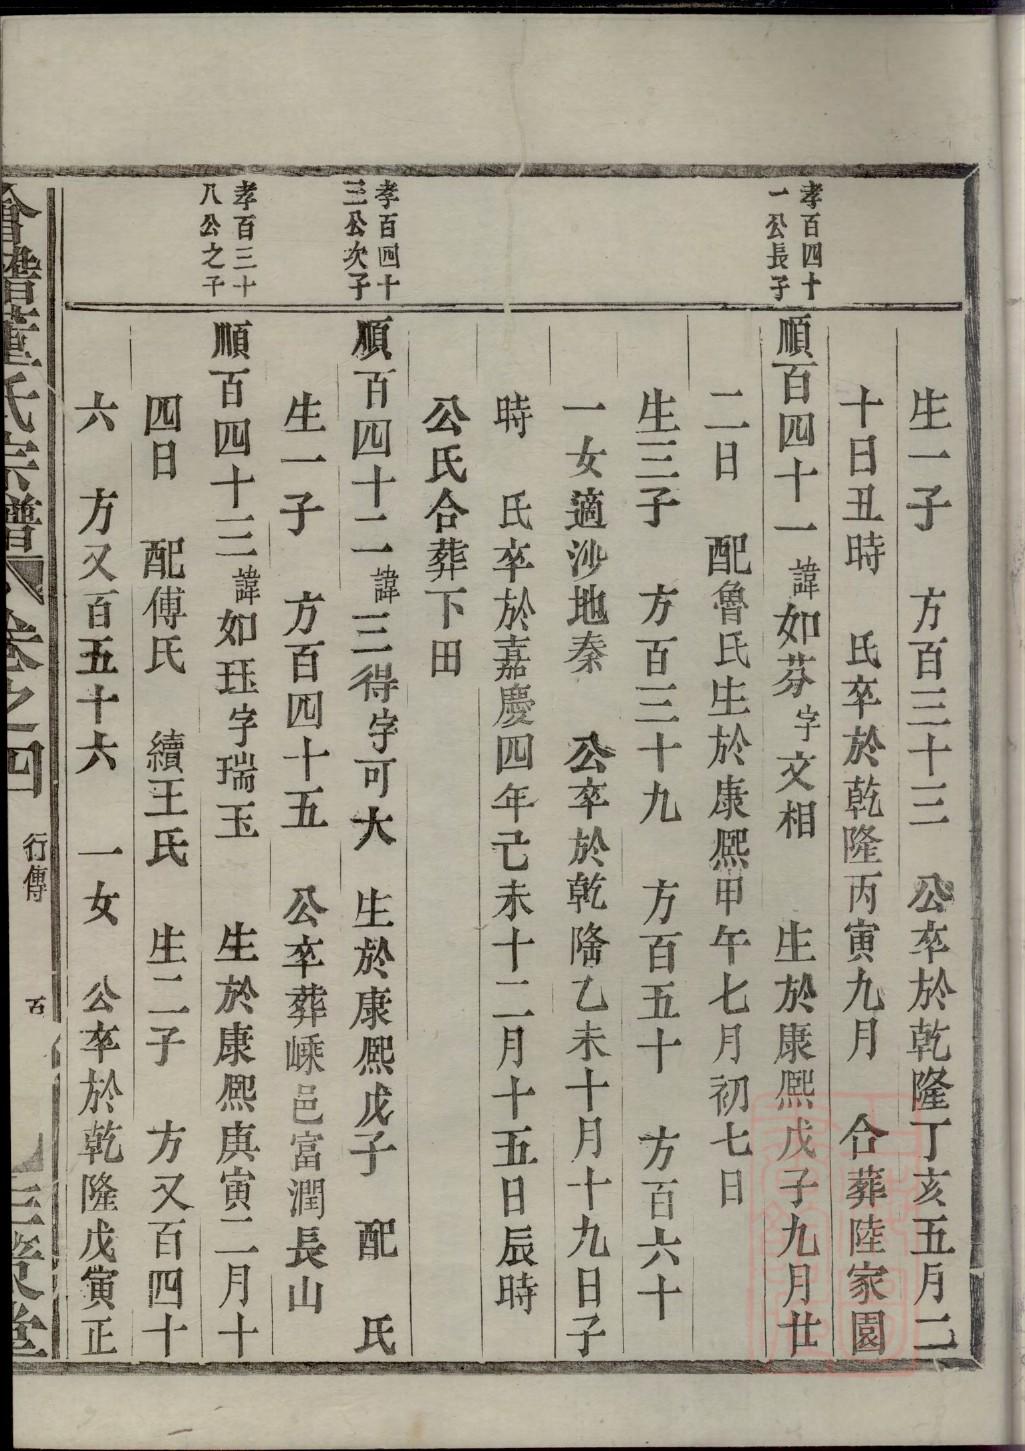 生一子　方百三十三　公卒於乾隆丁亥五月二
十日丑時　氏卒於乾隆丙寅九月　合葬陸家園
孝百四十
一公長子
順百四十一諱如芬字文相　生於康熙戊子九月廿
二日　配魯氏生於康熙甲午七月初七日
生三子　方百三十九　方百五十　方百六十
一女適沙地秦　公卒於乾隆乙未十月十九日子
時　氏卒於嘉慶四年己未十二月十五日辰時
公氏合葬下田
孝百四十
三公次子
順百四十二諱三得字可大　生於康熙戊子　配　氏
生一子　方百四十五　公卒葬嵊邑富潤長山
孝百三十
八公之子
順百四十三諱如珏字瑞玉　生於康熙庚寅二月十
四日　配傅氏　續王氏　生二子　方又百四十
六　方又百五十六　一女　公卒於乾隆戊寅正
會稽董氏宗譜　卷之四　行傳　百　三策堂